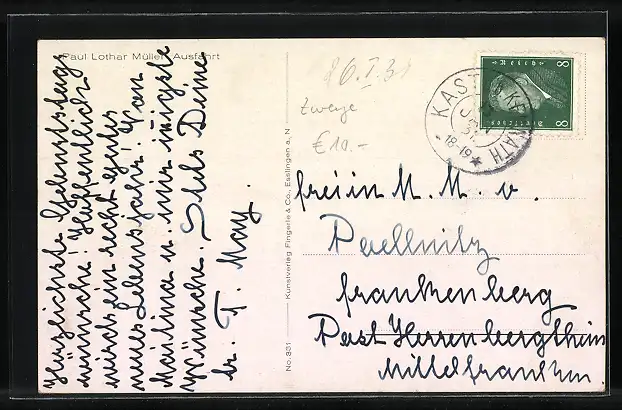 Paul Lothar Müller: Ausfahrt
Herzlichste Geburtstags
wünsche! Hoffentlich
wird's ein recht gutes
neues Lebensjahr! Von
Martina u. mir innigste
Wünsche. Stets Deine
tr. T. May.
No. 331
Kunstverlag Fingerle & Co., Esslingen a. N
26.I.31
Zwerge
£10.-
KASTL
KEMNATH
31
18-19
8 8
Deutsches Reich
freiin M. M. v.
Poellnitz
Frankenberg
Post Herrenbergtheim
Mittelfranken.